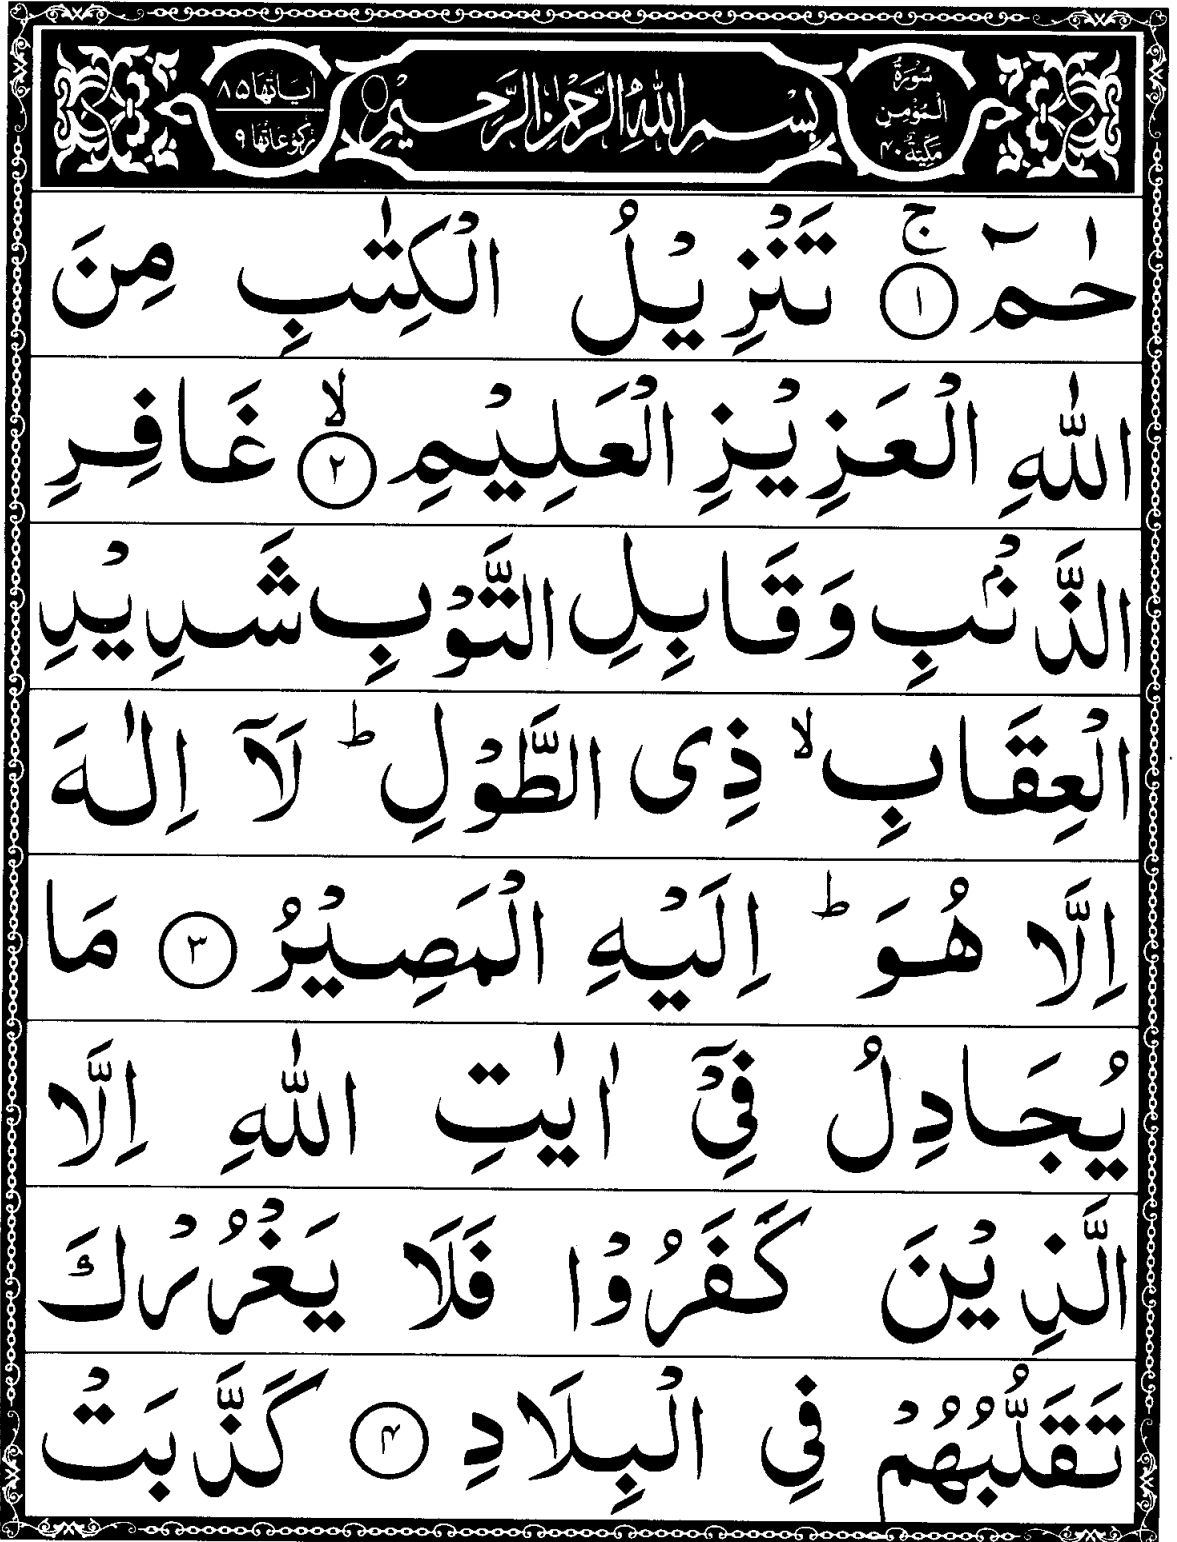 سُوْرَةُ
الْمُؤْمِنِ
مَكِّيَّةٌ ۴۰
بِسْمِ اللّٰهِ الرَّحْمٰنِ الرَّحِيْمِ
اٰيَاتُهَا ۸۵
رُكُوْعَاتُهَا ۹
حٰمٓ ۚ ﴿۱﴾ تَنْزِيْلُ الْكِتٰبِ مِنَ
اللّٰهِ الْعَزِيْزِ الْعَلِيْمِ ۙ ﴿۲﴾ غَافِرِ
الذَّنْۢبِ وَقَابِلِ التَّوْبِ شَدِيْدِ
الْعِقَابِ ۙ ذِى الطَّوْلِ ؕ لَاۤ اِلٰهَ
اِلَّا هُوَ ؕ اِلَيْهِ الْمَصِيْرُ ﴿۳﴾ مَا
يُجَادِلُ فِىْۤ اٰيٰتِ اللّٰهِ اِلَّا
الَّذِيْنَ كَفَرُوْا فَلَا يَغْرُرْكَ
تَقَلُّبُهُمْ فِى الْبِلَادِ ﴿۴﴾ كَذَّبَتْ